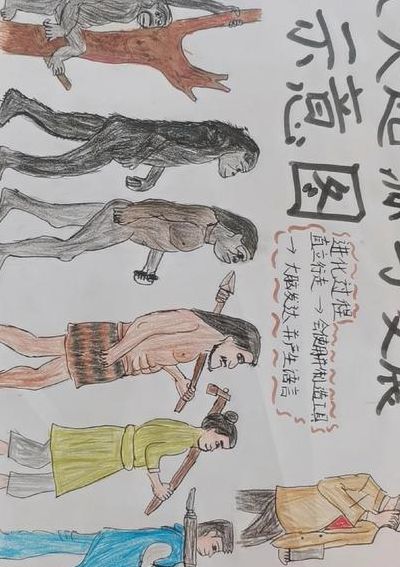 人类起源与发展
示意图
进化过程
直立行走 → 会使用并制造工具
→ 大脑发达并产生语言